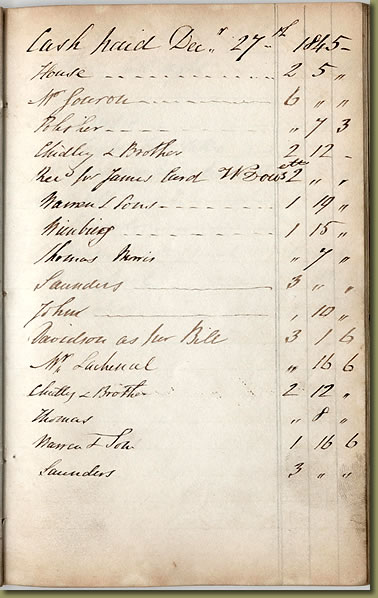 Cash paid Decr 27th 1845-
House 2 5 "
Mr Jouron 6 " "
" 7 3
Chidley & Brother 2 12 -
Recd for James Card 2 " "
Warren & Sons 1 19 "
1 15 "
Thomas Morris " 7 "
Saunders 3 " "
John " 10 "
Davidson as per Bill 3 1 6
Mr Lachenal " 16 6
Chidley & Brother 2 12 "
Thomas " 8 "
Warren & Son 1 16 6
Saunders 3 " "